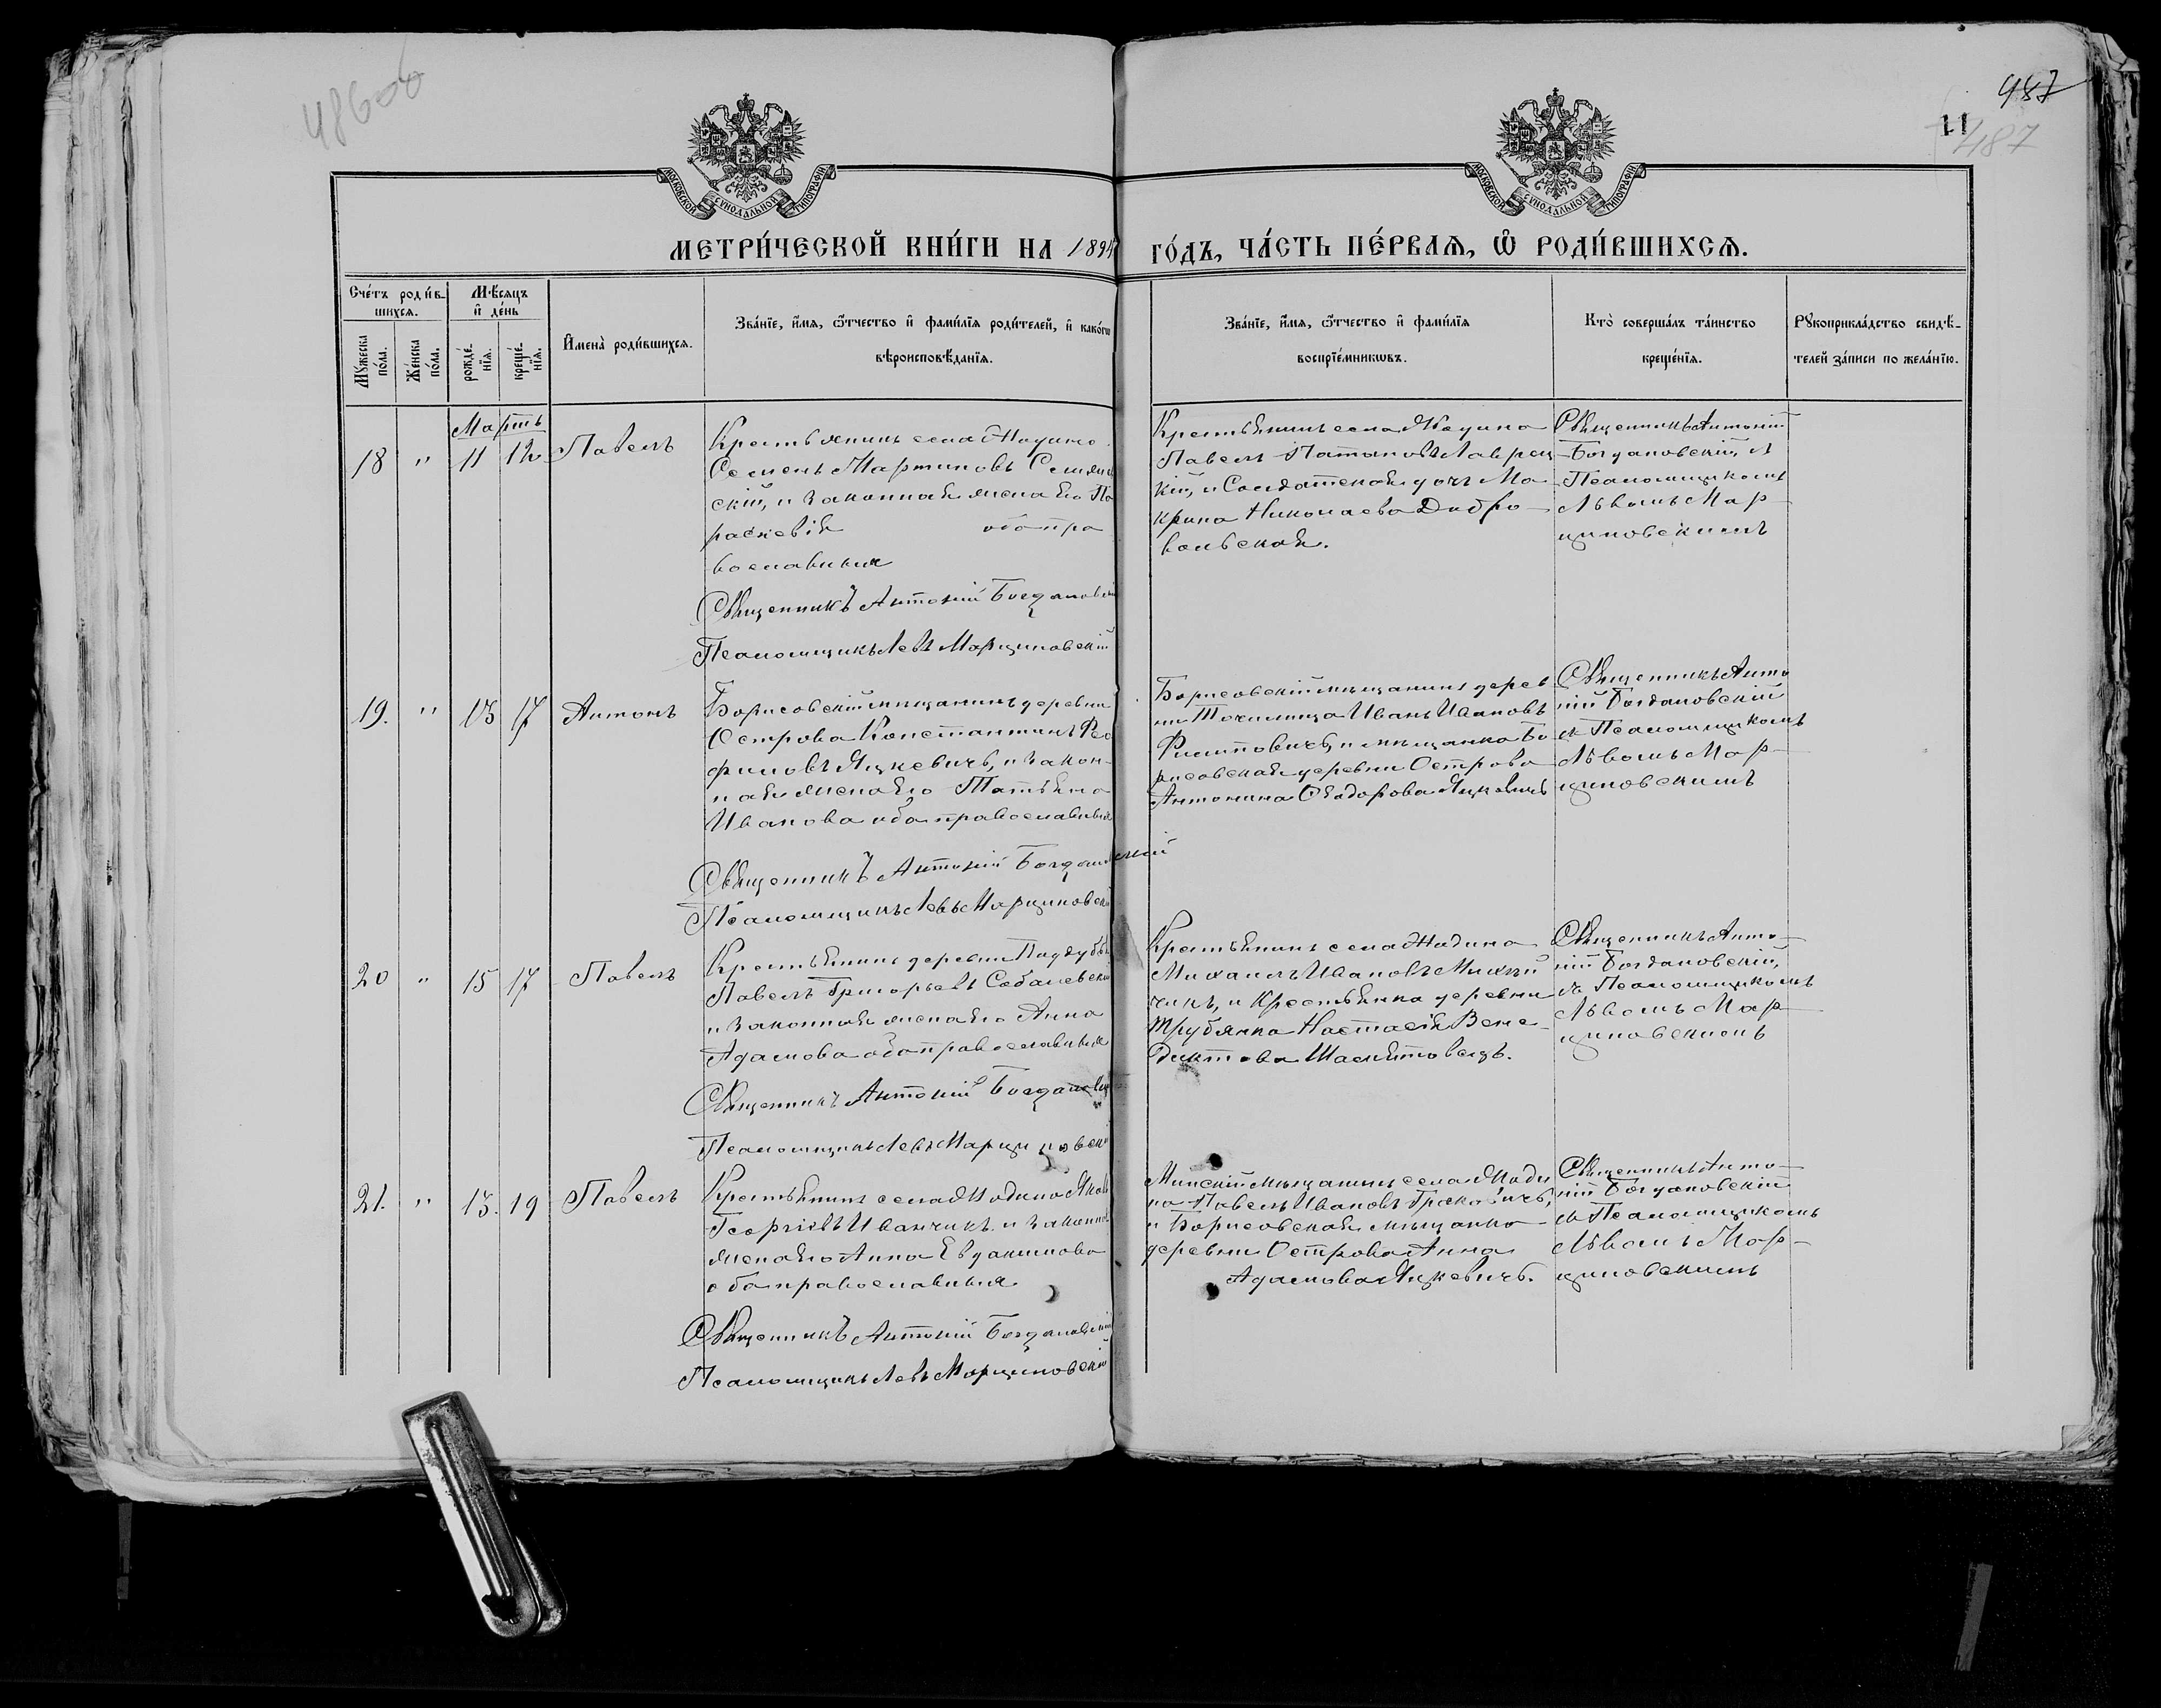 486об
487
11
487
МОСКОВСКОЙ СѴНОДАЛЬНОЙ ТИПОГРАФІИ
МОСКОВСКОЙ СѴНОДАЛЬНОЙ ТИПОГРАФІИ
МЕТРИ́ЧЕСКОЙ КНИ́ГИ НА 1894 ГО́ДЪ, ЧА́СТЬ ПЕ́РВАЯ, Ѽ РОДИ́ВШИХСЯ.
Сче́тъ роди́в-
шихся.
Мꙋ́жеска по́ла.
Же́нска по́ла.
Мѣ́сяцъ
и҆ де́нь
рожде́-
нїя.
креще́-
нїя.
И҆мена̀ роди́вшихся.
Зва́нїе, и҆́мя, ѻ҆́тчество и҆ фами́лїя роди́телей, и҆ како́гѡ
вѣроисповѣ́данїя.
Зва́нїе, и҆́мя, ѻ҆́тчество и҆ фами́лїя
воспрїе́мникѡвъ.
Кто̀ соверша́лъ та́инство
креще́нїя.
Рꙋкоприкла́дство свидѣ́-
телей за́писи по жела́нїю.
Мартъ
18 " 11 12 Павелъ
Крестьянинъ села Жодино
Семенъ Мартиновъ
скій, и законная жена его Па
раскевія оба пра
вославныя
Священникъ Антоній Богдановскій
Псаломщикъ Левъ Марциновскій
Крестьянинъ села Жодина
Павелъ Лаврец
кій, и Солдатская дочь Ма
крина Николаева Добро-
вольская.
Священникъ Антоній
Богдановскій, съ
Псаломщикомъ
Львомъ Мар-
циновскимъ
19. " 13 17 Антонъ
Борисовскій мѣщанинъ деревни
Острова Константинъ Фео
филовъ Яцкевичъ, и закон-
ная жена его Татьяна
Иванова оба православныя
Священникъ Антоній Богдановскій
Псаломщикъ Левъ Марциновскій
Борисовскій мѣщанинъ дерев
ни Точилища Иванъ Ивановъ
Филиповичъ, и мѣщанка Бо
рисовская деревни Острова
Антонина Ѳеодорова Яцкевичъ
Священникъ Анто
ній Богдановскій
съ Псаломщикомъ
Львомъ Мар-
циновскимъ
20 " 15 17 Павелъ
Крестьянинъ деревни Поддубья
Павелъ Григорьевъ Соболевскій
и законная жена его Анна
Адамова оба православныя
Священникъ Антоній Богдановскій
Псаломщикъ Левъ Марциновскій
Крестьянинъ села Жодина
Михаилъ Ивановъ
чикъ, и Крестьянка деревни
Трубянка Настасія Вене-
диктова
Священникъ Анто-
ній Богдановскій,
съ Псаломщикомъ
Львомъ Мар-
циновскимъ
21. " 15. 19 Павелъ
Крестьянинъ села Жодино Яковъ
Георгіевъ Иванчикъ и законная
жена его Анна Евдокимова
оба православныя
Священникъ Антоній Богдановскій
Псаломщикъ Левъ Марциновскій
Минскій мѣщанинъ села Жоди
на Павелъ Ивановъ
и Борисовская мѣщанка
деревни Острова Анна
Адамова Яцкевичъ.
Священникъ Анто-
ній Богдановскій
съ Псаломщикомъ
Львомъ Мар-
циновскимъ